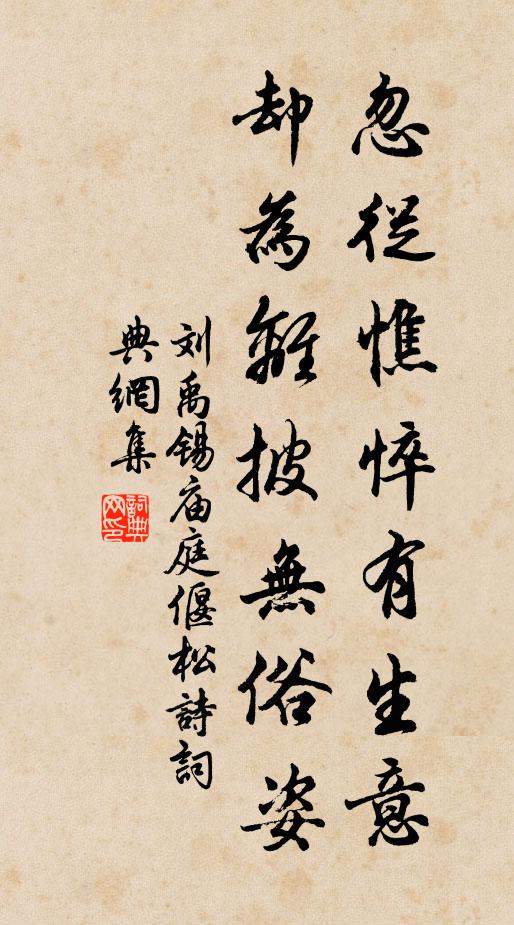 忽從憔悴有生意
却為離披無俗姿
刘禹锡庙庭偃松詩詞
典網集
詞典
网印